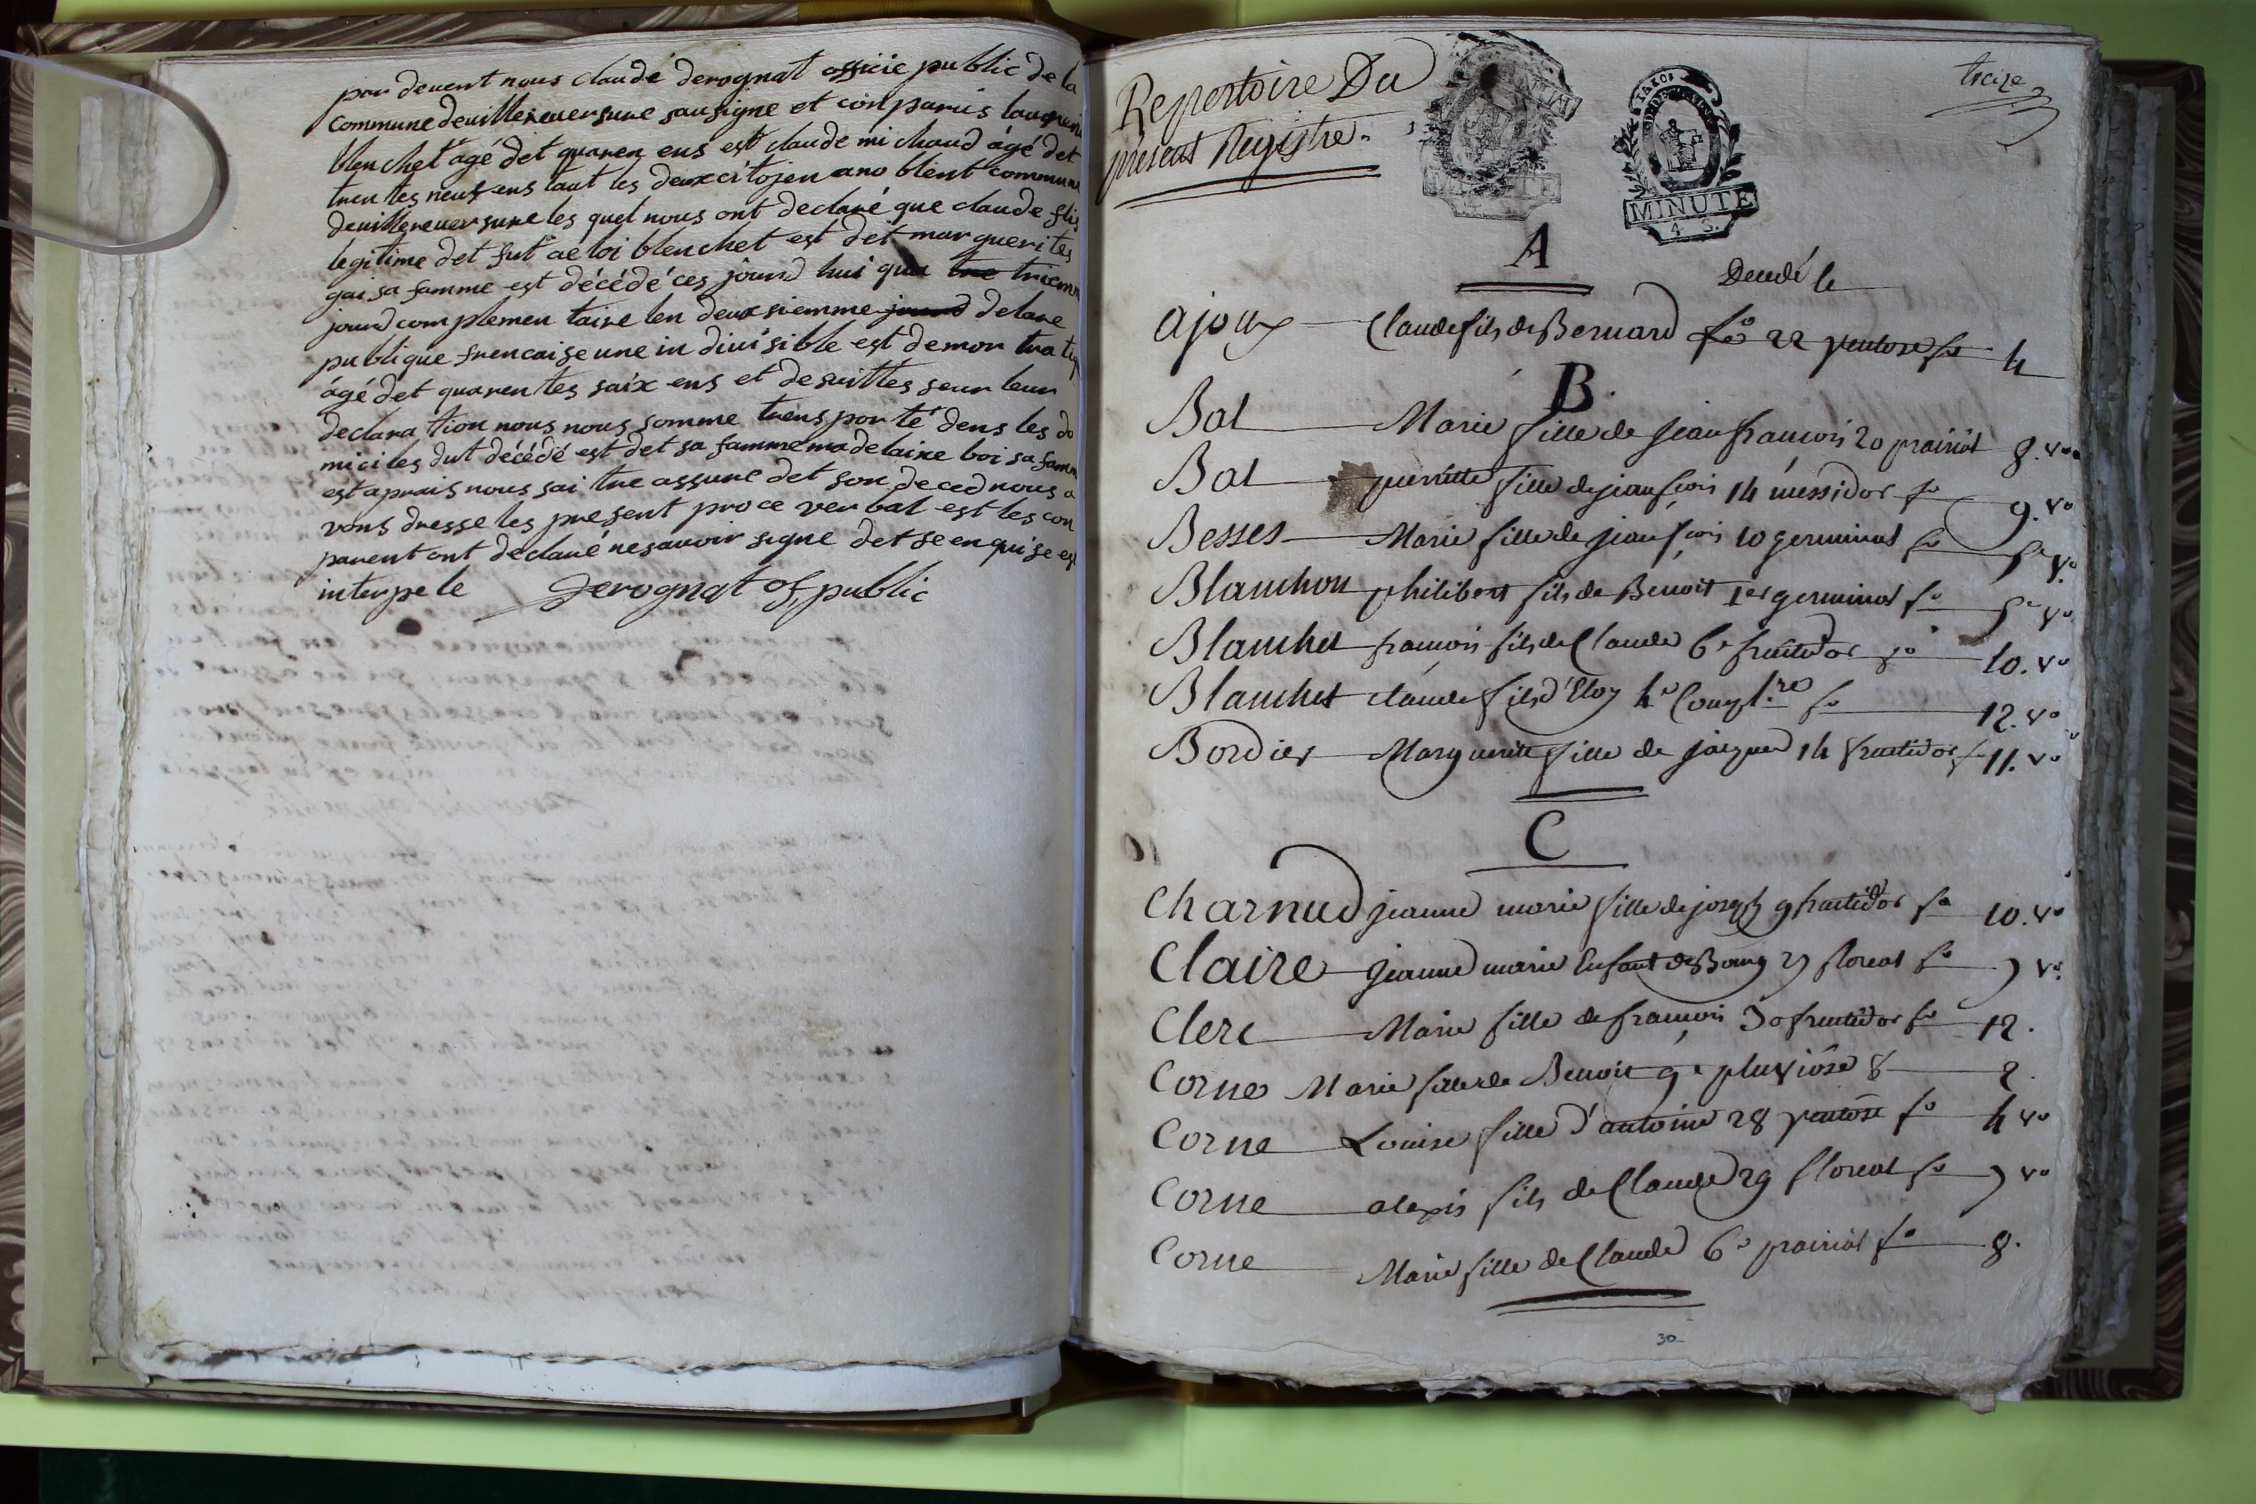 par devent nous claude derognat officie public de la
commune deuillereuersure sausigne et conparuis
blenchet agé det quaren ens est claude michaud âgé det
tren tes neuf ens taut les deux citojen ano blent commune
deuillereuersure les quel nous ont declaré que claude flis
legitime det fut aeloi blenchet est det marguerites
gai sa famme est décédé ces jourd hui qua tre triemm
jourd complemen taire len deuxsiemme jourd delare
publique francaise une in diuisible est demon tra
âgé det quarentes saix ens et desuittes seur leur
declara tion nous nous somme trens por té dens les do
miciles dut décédé est det sa famme madelaine boi sa famm
est aprais nous sai tre assure det son deced nous a
vons dresse les present proce verbal est les con
parent ont declaré nesauoir signe det se en quise es
interpele derognat of public
Repertoire Du
present Registre.
treize
MINUTE
MINUTE
4 S.
A
Decedé le
ajoux Claude fils de Bernard fo 22 ventose fo 4
B.
Bal Marie fille de jean francois 20 prairial 8. vo
Bal pierrette fille de jean fçois 14 messidor fo 9. vo
Besses Marie fille de jean fçois 10 germinal fo 5e vo
Blanchon philibert fils de Benoit 1er germinal fo 5e vo
Blanchet francois fils de Claude 6e fructidor fo 10. vo
Blanchet claude fils d'Eloy 4e Compl.re fo 12. vo
Bordier Marguerite fille de jacques 14 fructidor fo 11. vo
C
Charnud jeanne marie fille de joseph 9 fructidor fo 10. vo
Claire jeanne marie Enfant de Bourg 27 floreal fo 7 vo
Clerc Marie fille de francois 30 fructidor fo 12.
Corne Marie fille de Benoit 9e pluviôse fo 2.
Corne Louise fille d'antoine 28 ventôse fo 4 vo
Corne alexis fils de Claude 29 floreal fo 7 vo
Corne Marie fille de Claude 6e prairial fo 8.
30